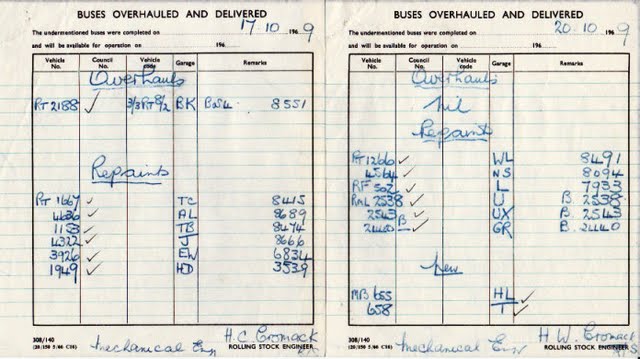 BUSES OVERHAULED AND DELIVERED
The undermentioned buses were completed on 17.10 1969
and will be available for operation on 196
Vehicle No. Council No. Vehicle code Garage Remarks
Overhauls
RT 2188 ✓ 3/3RT8/2 BK 8551
Repaints
RT 1667 ✓ TC 8415
4636 ✓ AL 8689
1153 ✓ TB 8474
4322 ✓ J 8666
3926 ✓ EW 6834
1949 ✓ HD 3539
308/140
Mechanical Eng H.C. Cromack
ROLLING STOCK ENGINEER
BUSES OVERHAULED AND DELIVERED
The undermentioned buses were completed on 20.10 1969
and will be available for operation on 196
Vehicle No. Council No. Vehicle code Garage Remarks
Overhauls
Nil
Repaints
RT 1266 ✓ WL 8491
4564 ✓ NS 8094
RF 502 ✓ L 7933
RML 2538 ✓ U B. 2538
2543 ✓ UX B. 2543
2440 B ✓ GR B. 2440
New
MB 655 HL ✓
658 T ✓
308/140
Mechanical Eng H.W. Cromack
ROLLING STOCK ENGINEER